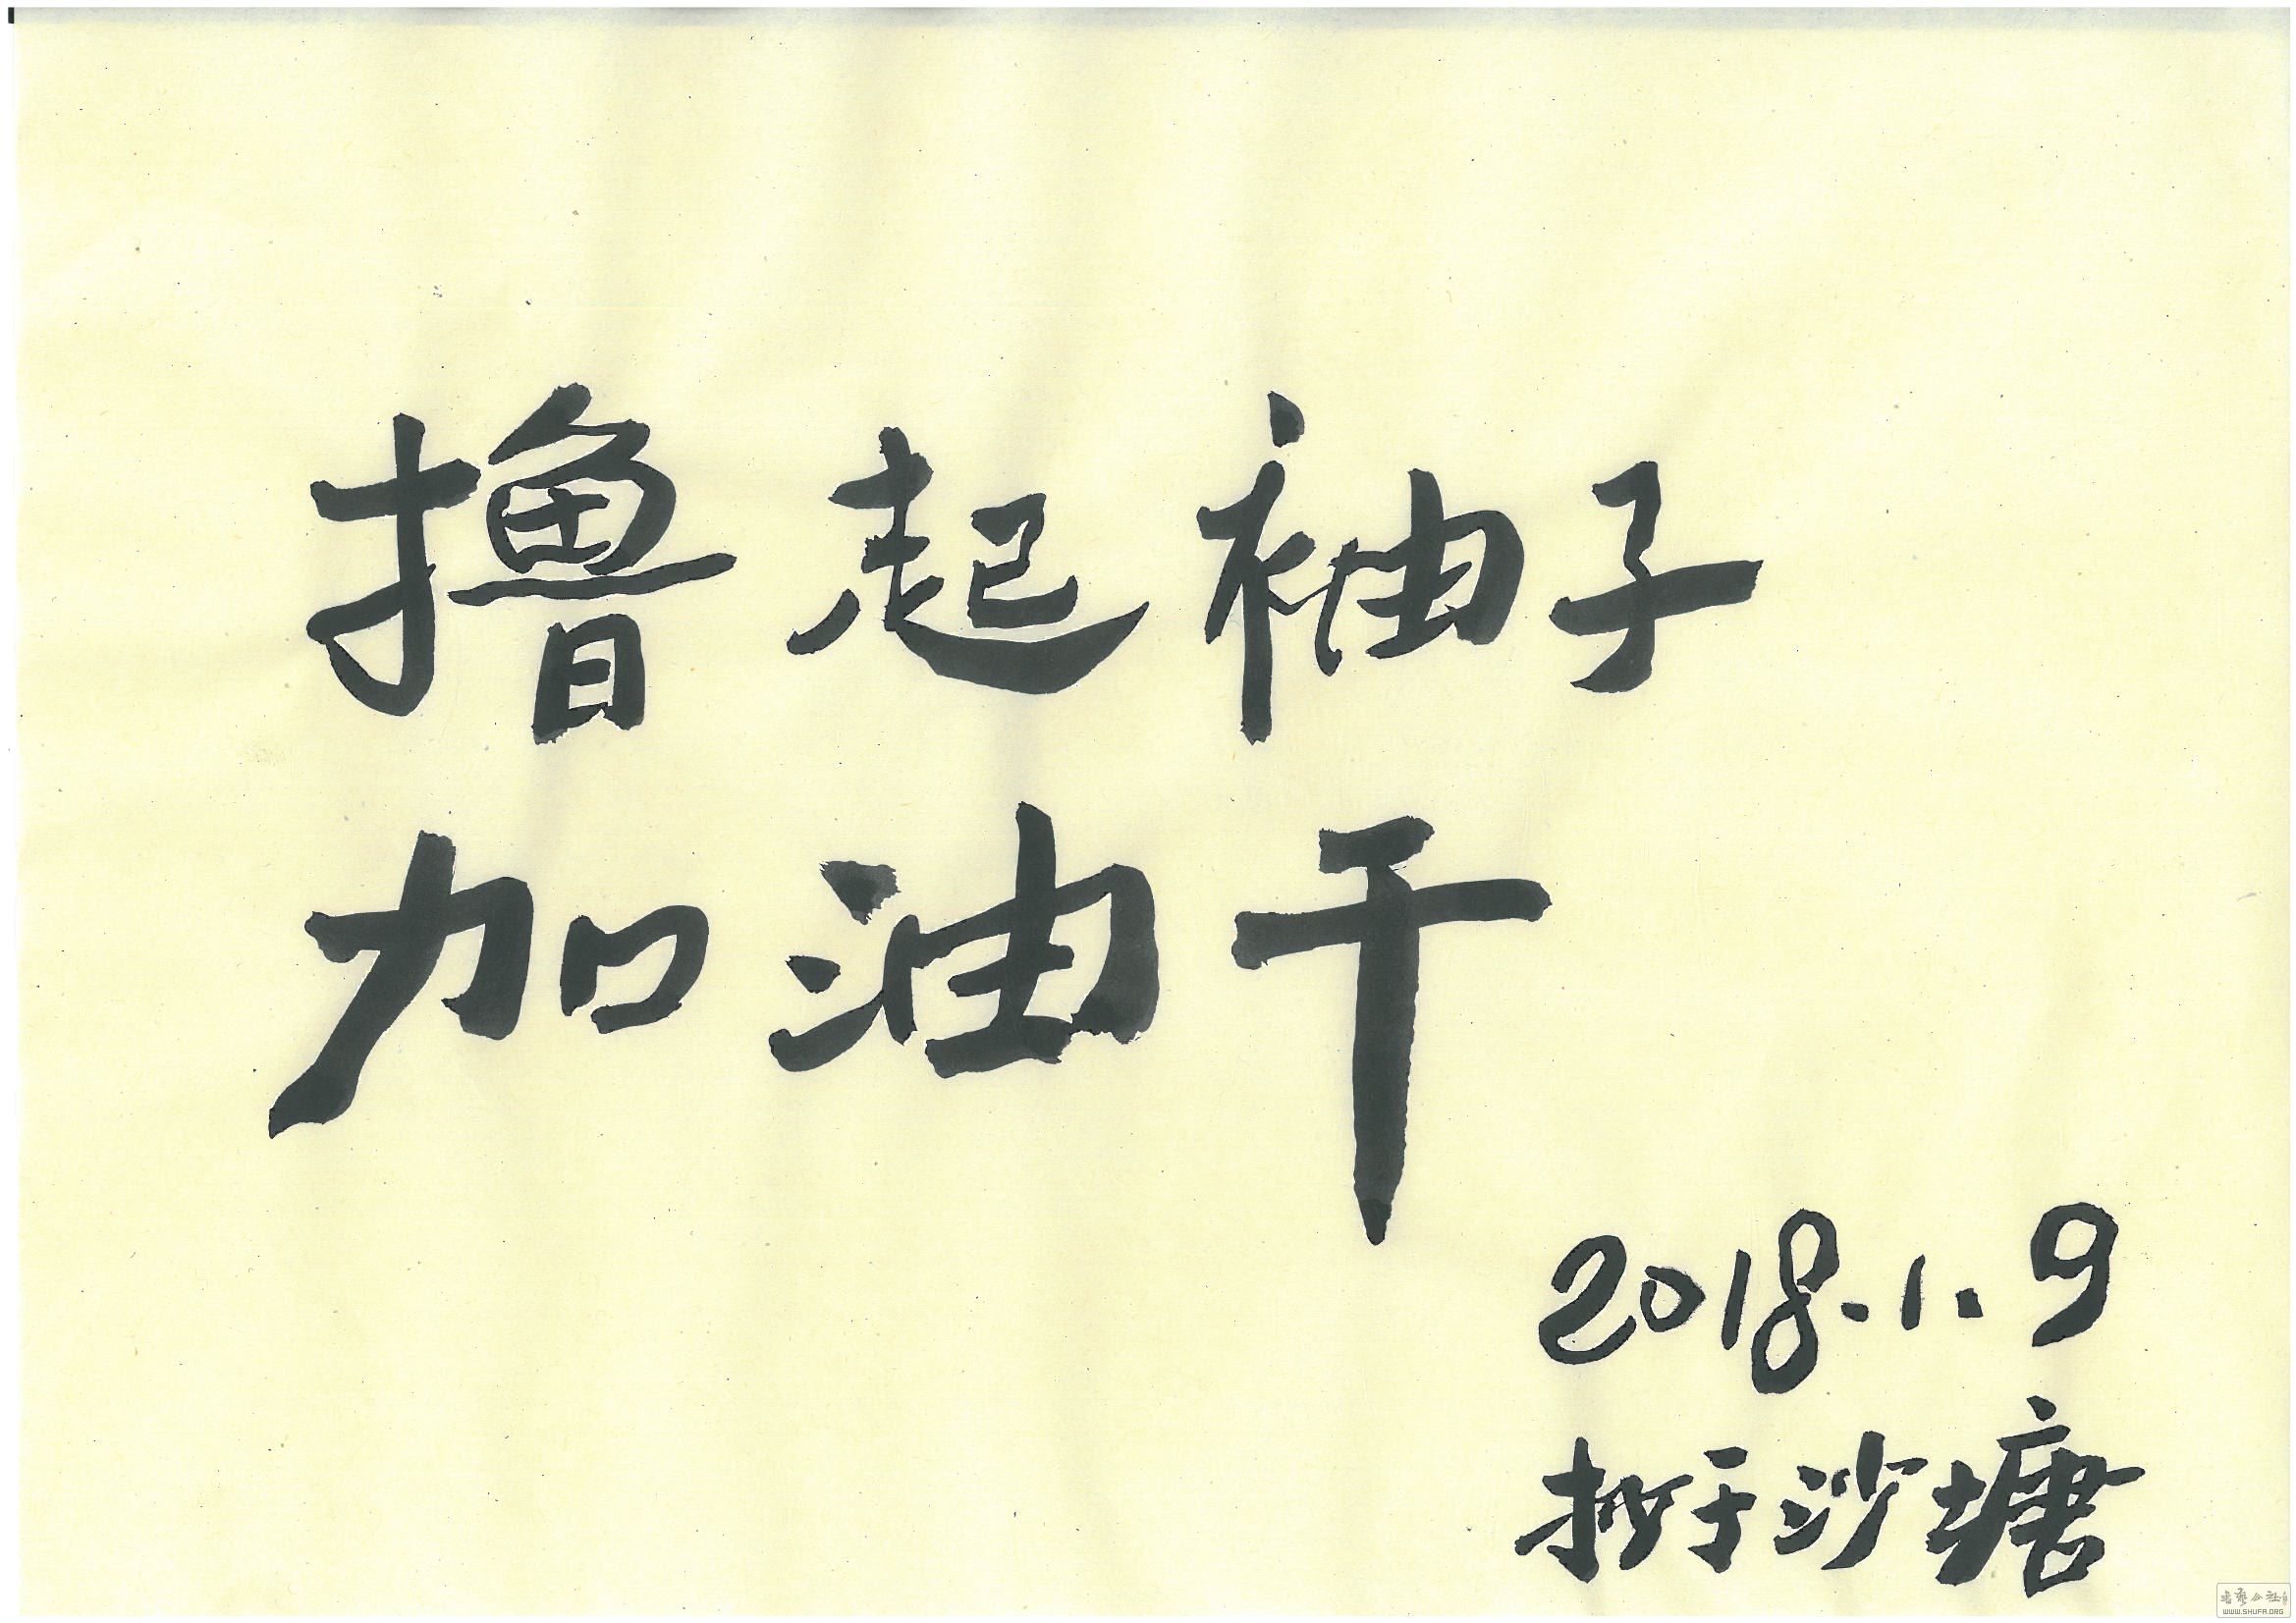 撸起袖子
加油干
2018.1.9
抄于沙塘
WWW.SHUFA.ORG